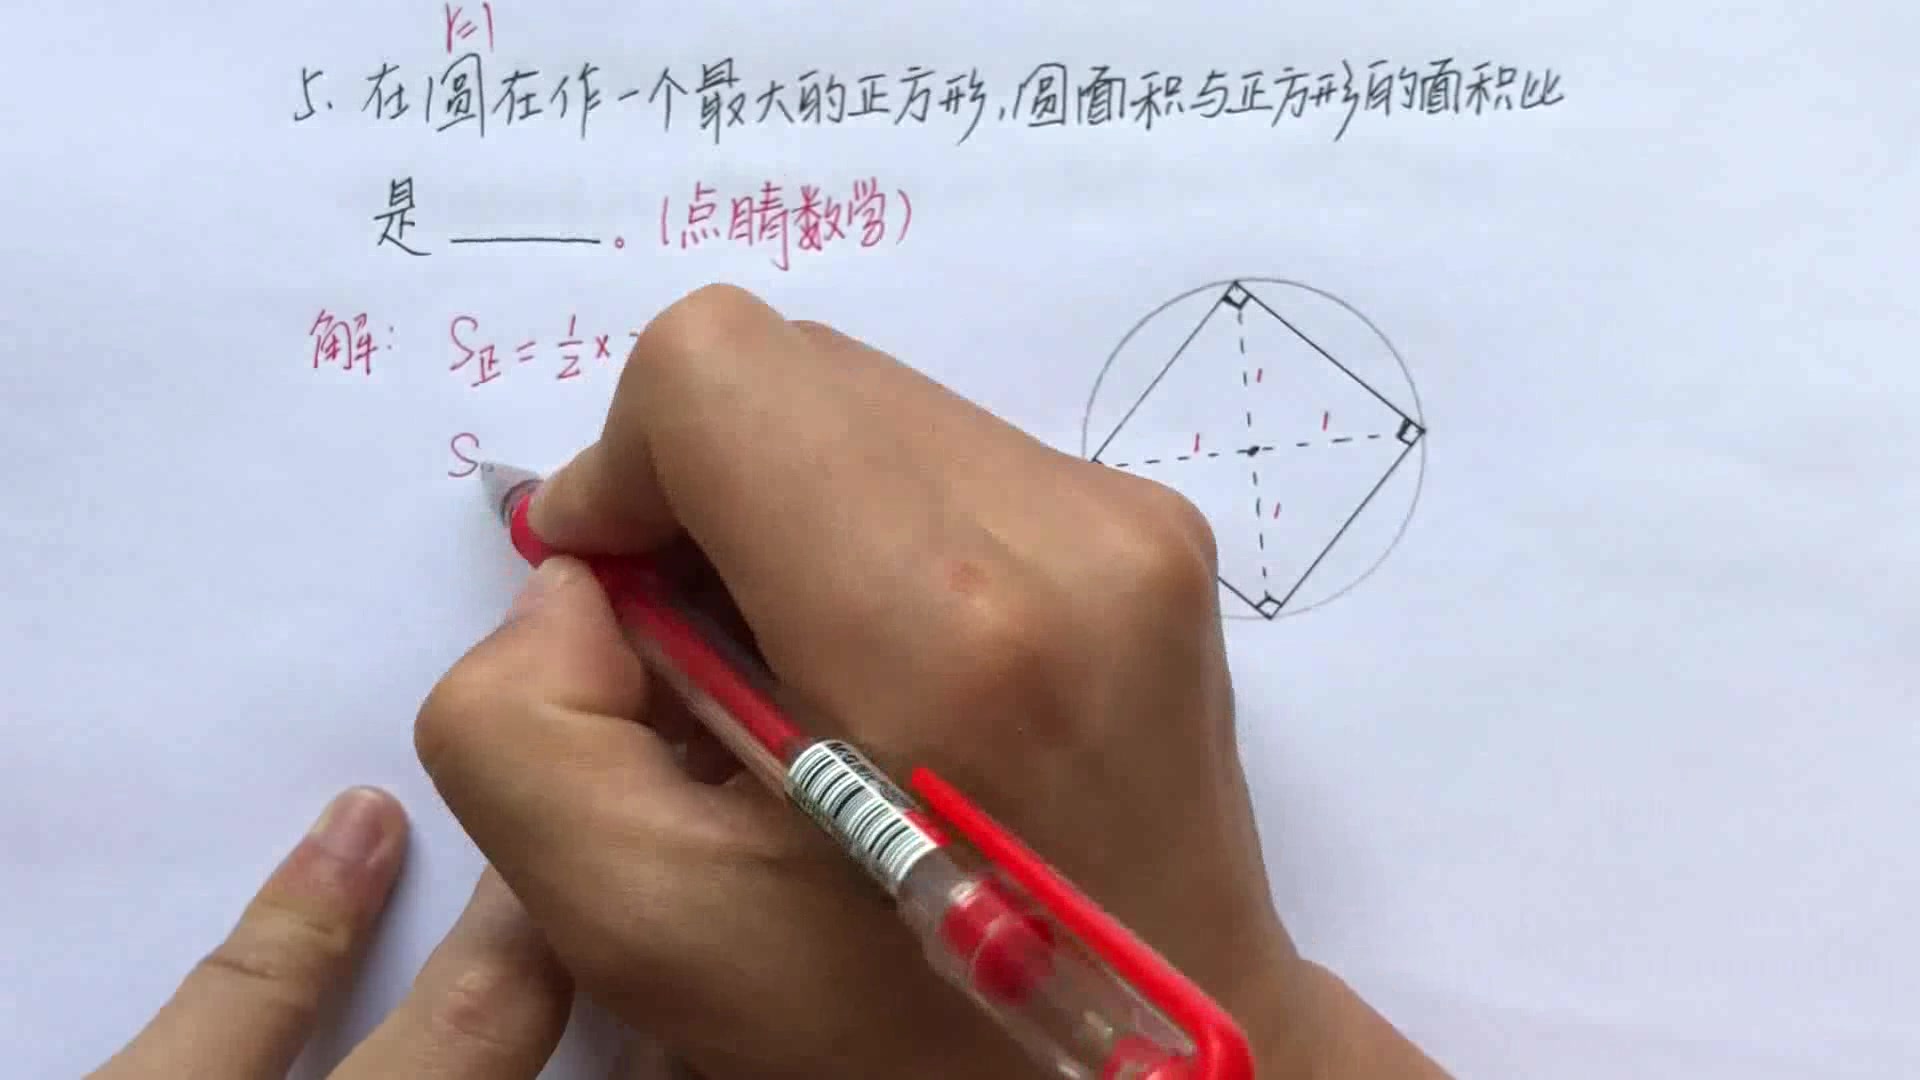 r=1
5. 在圆在作一个最大的正方形,圆面积与正方形的面积比
是 ______。(点睛数学)
解: S正 = 1/2 ×
S
1
1
1
1